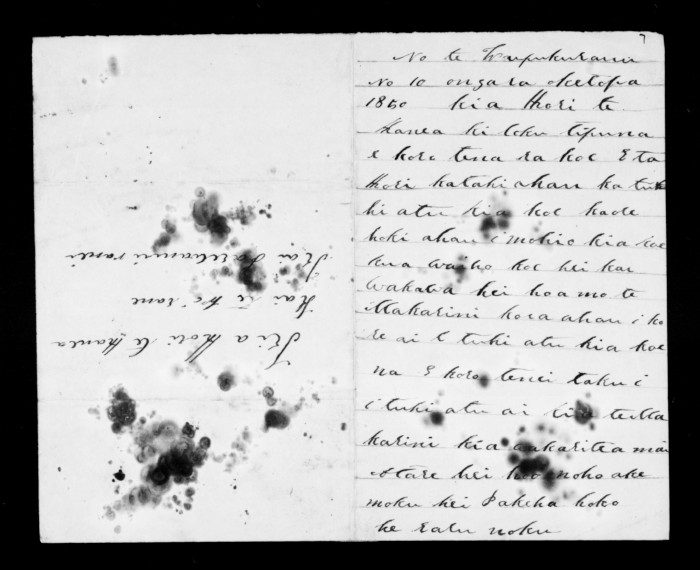 7
No te Waipukurau
No 10 ongara Oketopa
1850 kia Hori te
Hanea ki toku tipuna
e koro tena ra koe E ta
Hori katahi ahau ka tuh
hi atu kia koe kaore
hoki ahau i mohio kia koe
kua waiho koe hei kai
wakawa hei hoa mo te
Makarini koia ahau i ko
re ai e tuhi atu kia koe
na E koro tenei taku i
i tuhi atu ai kia te Ma
karini kia wakaritea mai
hei noho ake
moku hei Pakeha hoko
he ratu noku
Kia Hori te Hanea
Kai
Kai